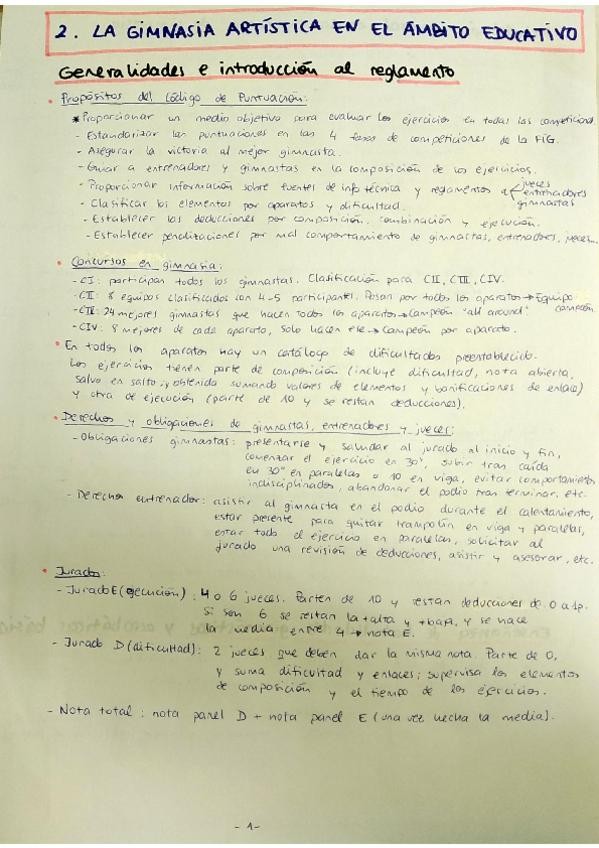 2. LA GIMNASIA ARTÍSTICA EN EL ÁMBITO EDUCATIVO
Generalidades e introducción al reglamento
• Propósitos del Código de Puntuación:
* Proporcionar un medio objetivo para evaluar los ejercicios en todas las competiciones
- Estandarizar las puntuaciones en las 4 fases de competiciones de la FIG.
- Asegurar la victoria al mejor gimnasta.
- Guiar a entrenadores y gimnastas en la composición de los ejercicios.
- Proporcionar información sobre fuentes de info técnica y reglamentos a jueces entrenadores gimnastas
- Clasificar los elementos por aparatos y dificultad.
- Establecer las deducciones por composición, combinación y ejecución.
- Establecer penalizaciones por mal comportamiento de gimnastas, entrenadores, jueces.
• Concursos en gimnasia:
- CI: participan todos los gimnastas. Clasificación para CII, CIII, CIV.
- CII: 8 equipos clasificados con 4-5 participantes. Pasan por todos los aparatos → Equipo campeón
- CIII: 24 mejores gimnastas que hacen todos los aparatos → Campeón "all around"
- CIV: 8 mejores de cada aparato, solo hacen ese → Campeón por aparato.
• En todos los aparatos hay un catálogo de dificultades preestablecido.
Los ejercicios tienen parte de composición (incluye dificultad, nota abierta,
salvo en salto, obtenida sumando valores de elementos y bonificaciones de enlace)
y otra de ejecución (parte de 10 y se restan deducciones).
• Derechos y obligaciones de gimnastas, entrenadores y jueces:
- Obligaciones gimnastas: presentarse y saludar al jurado al inicio y fin,
comenzar el ejercicio en 30", subir tras caída
en 30" en paralelas o 10 en viga, evitar comportamientos
indisciplinados, abandonar el podio tras terminar, etc.
- Derechos entrenador: asistir al gimnasta en el podio durante el calentamiento,
estar presente para quitar trampolín en viga y paralelas,
estar todo el ejercicio en paralelas, solicitar al
jurado una revisión de deducciones, asistir y asesorar, etc.
• Jurados:
- Jurado E (ejecución): 4 o 6 jueces. Parten de 10 y restan deducciones de 0 a 1p.
Si son 6 se restan la + alta y + baja, y se hace
la media entre 4 → nota E.
- Jurado D (dificultad): 2 jueces que deben dar la misma nota. Parte de 0,
y suma dificultad y enlaces; supervisa los elementos
de composición y el tiempo de los ejercicios.
- Nota total: nota panel D + nota panel E (una vez hecha la media).
- 1 -